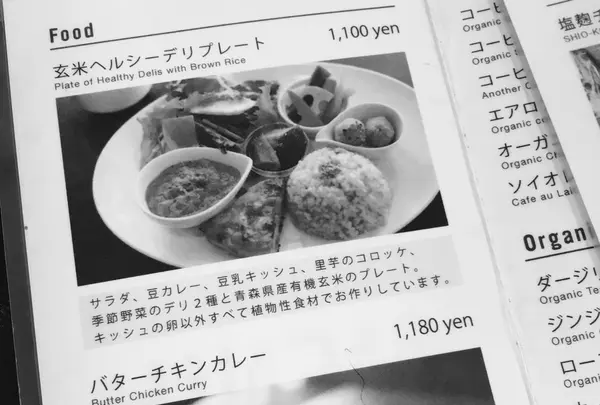 Food
玄米ヘルシーデリプレート 1,100 yen
Plate of Healthy Delis with Brown Rice
サラダ、豆カレー、豆乳キッシュ、里芋のコロッケ、
季節野菜のデリ2種と青森県産有機玄米のプレート。
キッシュの卵以外すべて植物性食材でお作りしています。
バターチキンカレー 1,180 yen
Butter Chicken Curry
コーヒ
Organic
コーヒ
Organic
コーヒ
Another C
エアロ
Organic co
オーガ
Organic Ch
ソイオレ
Cafe au Lai
Organ
ダージリ
Organic Te
ジンジ
Organic
ロー
Organic
塩麹チ
SHIO-K